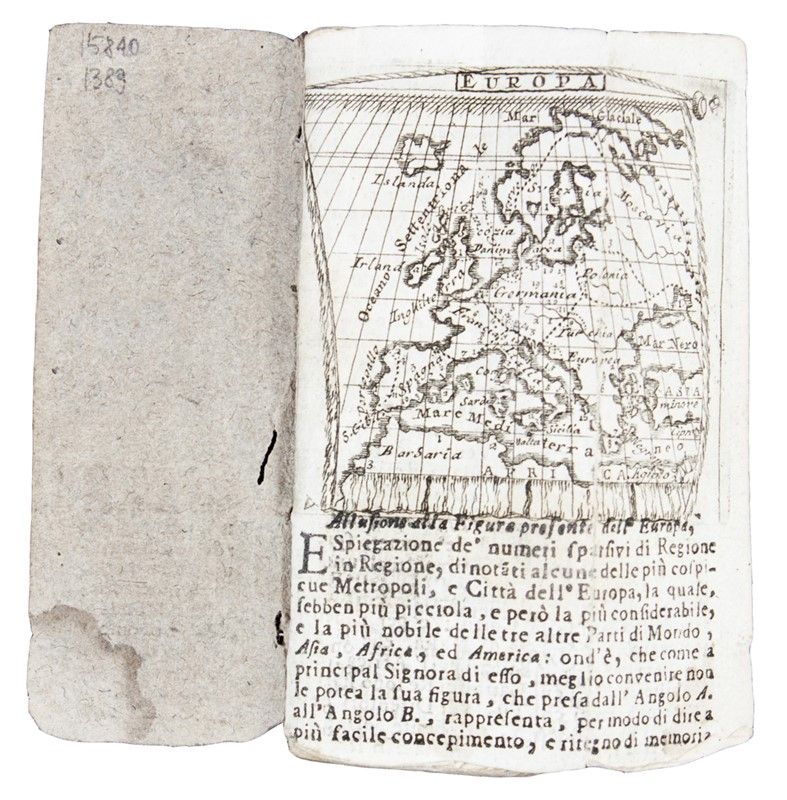 15840
1389
EUROPA
Mar Glaciale
Islanda
Oceano Settentrionale
Svecia
Moscovia
Scozia
Danimarca
Irlanda
Polonia
Inghilt
Germania
Turchia
Europea
Mar Nero
Spagna
Sard
ASIA
minore
Mare Medi
Sicilia
Malta
terra
neo
Barbaria
AFRICA
Allusione alla Figura presente dell' Europa,
E Spiegazione de' numeri sparsivi di Regione
in Regione, di notāti alcune delle più cospi-
cue Metropoli, e Città dell' Europa, la quale,
sebben più picciola, e però la più considerabile,
e la più nobile delle tre altre Parti di Mondo,
Asia, Africa, ed America: ond'è, che come a
principal Signora di esso, meglio convenire non
le potea la sua figura, che presa dall' Angolo A.
all' Angolo B., rappresenta, per modo di dire a
più facile concepimento, e ritegno di memoria